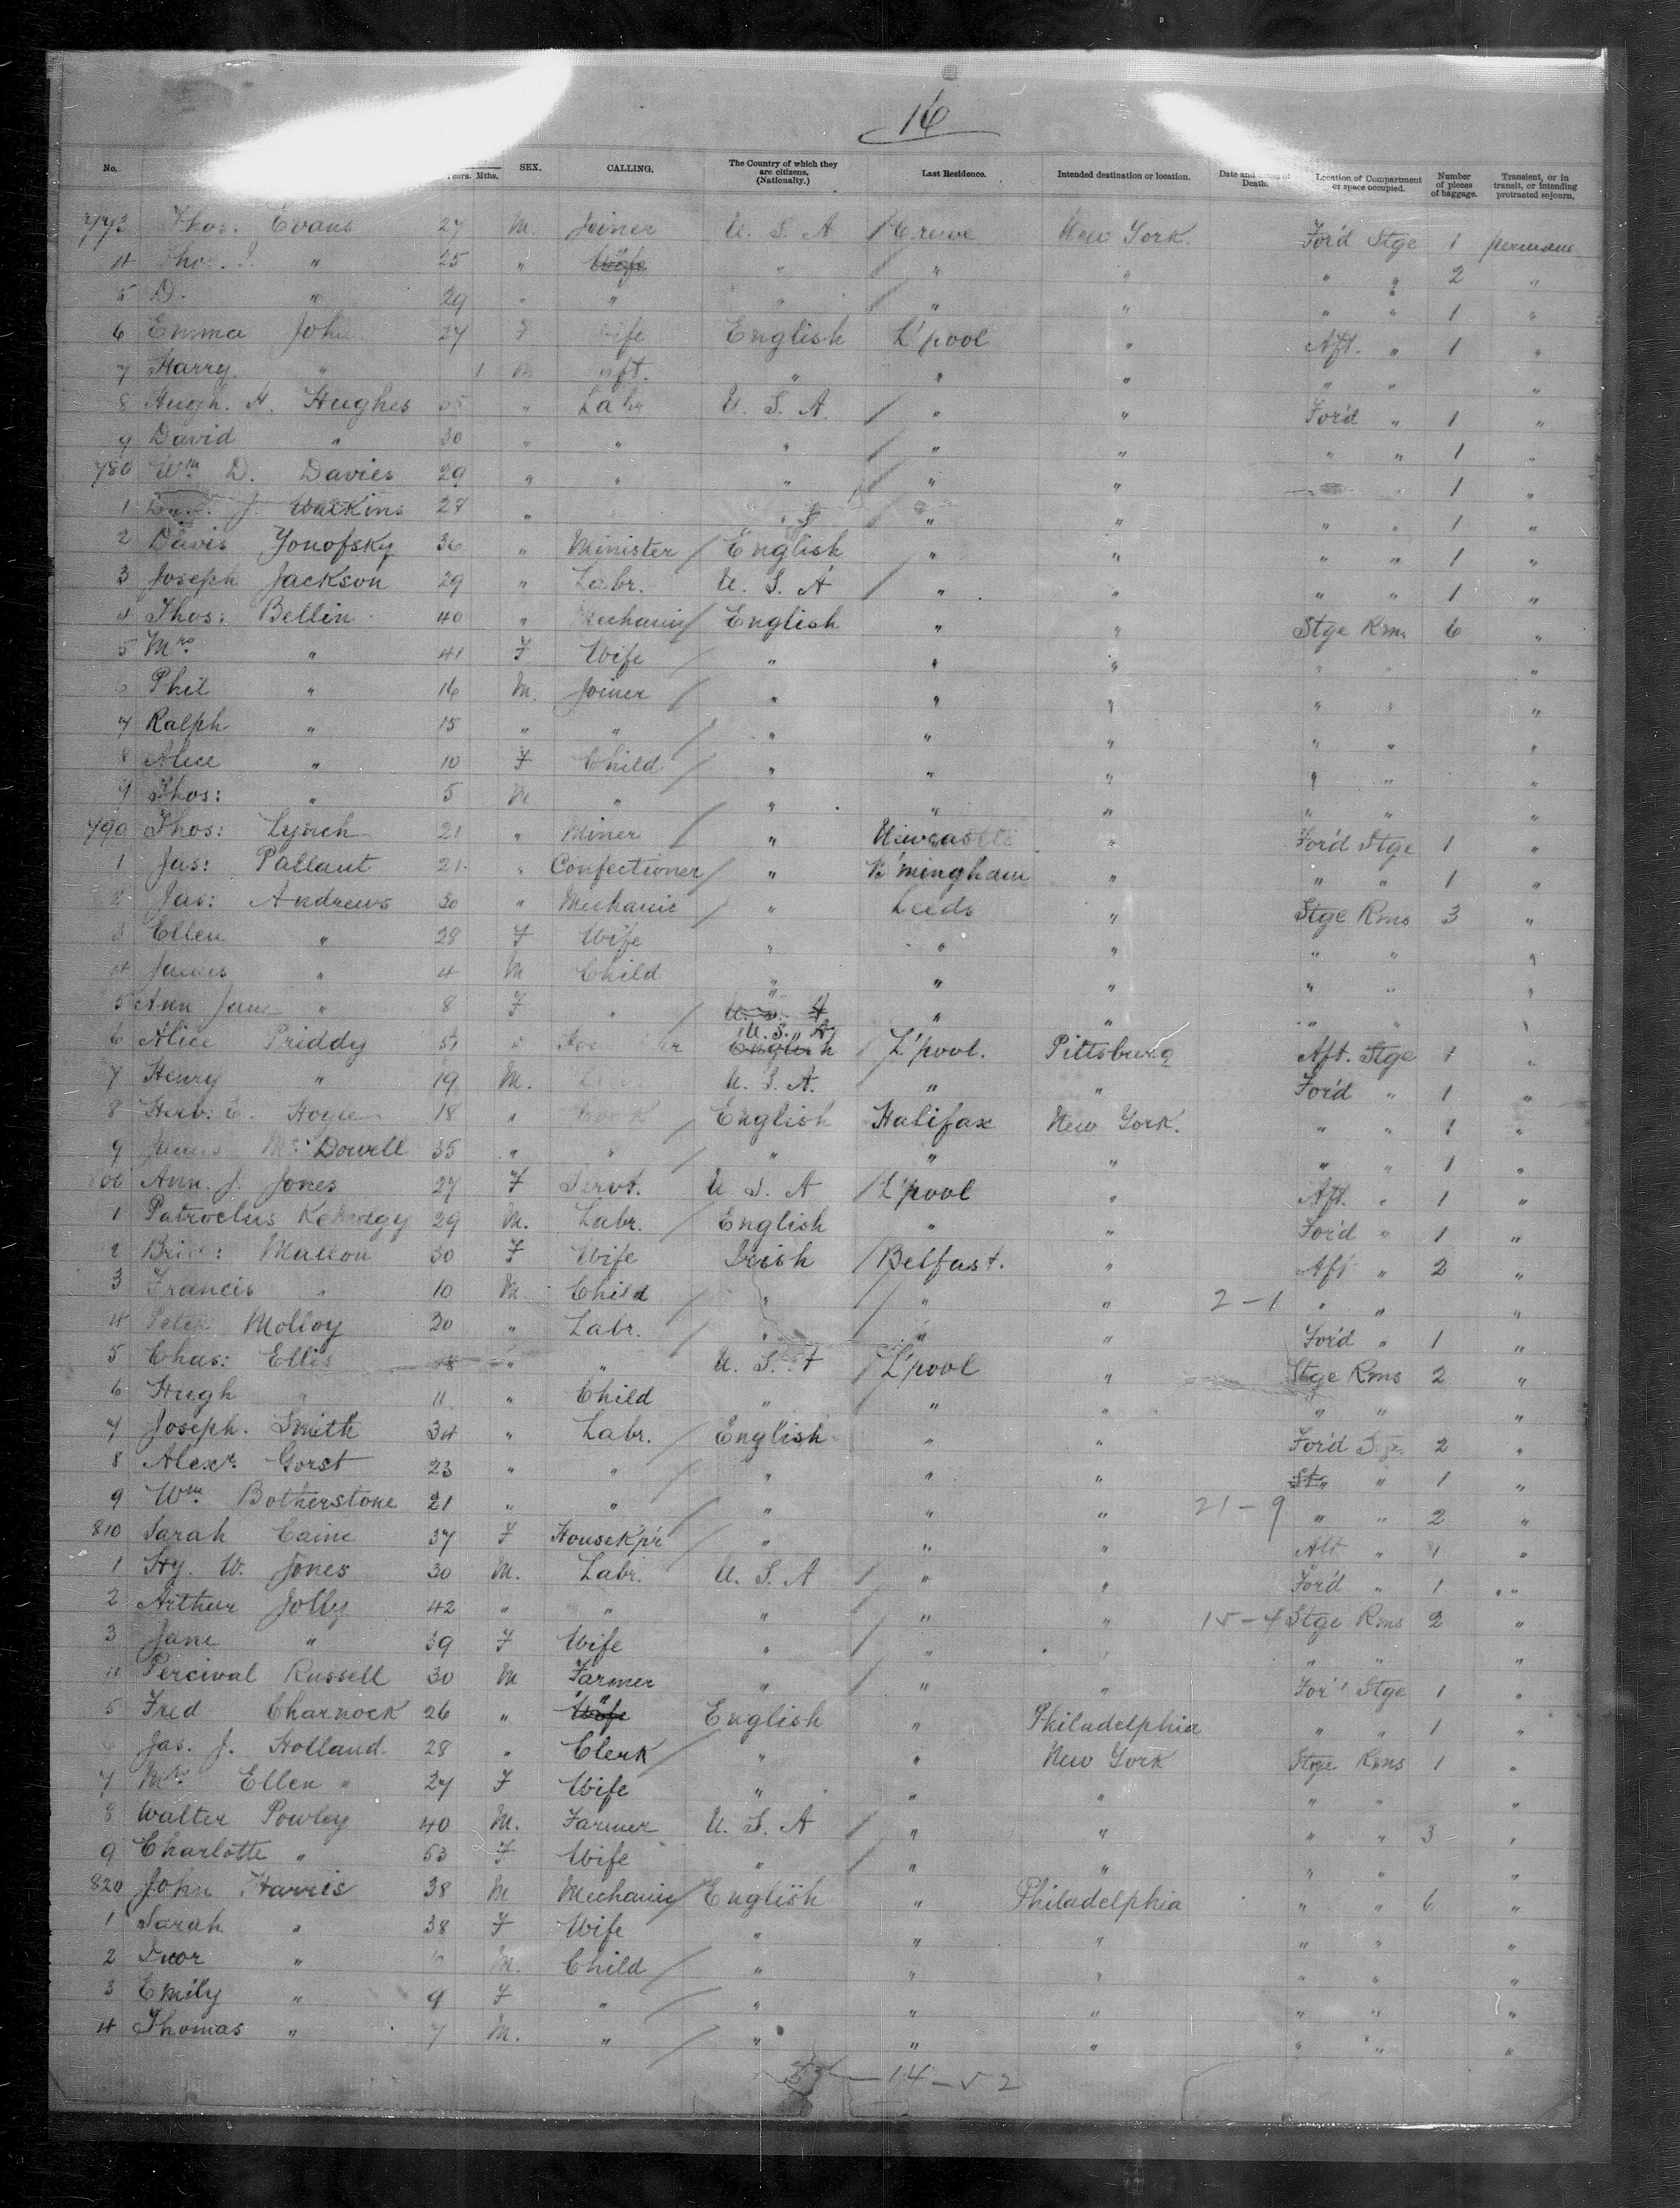 16
No. Years. Mths. SEX. CALLING. The Country of which they are citizens. (Nationalty.) Last Residence. Intended destination or location. Date and Death. Location of Compartment or space occupied. Number of pieces of baggage. Transient, or in transit, or intending protracted sojourn.
773 Thos: Evans 27 M. Joiner U. S. A Crewe New York. For'd Stge 1
4 Tho. J. " 25 " Wife " " " " " 2 "
5 D. " 29 " " " " " " " 1 "
6 Emma John 27 F Wife English L'pool " Aft. " 1 "
7 Harry. " 1 M " " " " " "
8 Hugh. H. Hughes " Labr U. S. A. " " For'd " 1 "
9 David " 30 " " " " " " " 1 "
780 Wm D. Davies 29 " " " " " " 1 "
1 J. Watkins 28 " " " " " " 1 "
2 Davis Yonofsky 36 " Minister English " " " " 1 "
3 Joseph Jackson 29 " Labr. U. S. A " " " " 1 "
4 Thos: Bellin 40 " Mechanic English " " Stge Rms 6 "
5 Mrs " 41 F Wife " " " " " "
6 Phil " 16 M. Joiner " " " " " "
7 Ralph " 15 " " " " " " " "
8 Alice " 10 F Child " " " " " "
9 Thos: " 5 M " " " " " " "
790 Thos: Lynch 21 " Miner " Newcastle " For'd Stge 1 "
1 Jas: Pallant 21 " Confectioner " B'mingham " " " 1 "
2 Jas: Andrews 30 " Mechanic " Leeds " Stge Rms 3 "
3 Ellen " 28 F Wife " " " " " "
4 James " 4 M Child " " " " " "
5 Ann Jane " 8 F " U. S. A " " " " "
6 Alice Priddy 51 " U. S. A English L'pool. Pittsburg Aft. Stge 1 "
7 Henry " 19 M. U. S. A. " " For'd " 1 "
8 Herb: E. Hoyle 18 " English Halifax New York. " " 1 "
9 James McDowell 35 " " " " " " " 1 "
800 Ann. J. Jones 27 F Servt. U. S. A L'pool " Aft. " 1 "
1 Patroclus 29 M. Labr. English " " For'd " 1 "
2 Mallon 30 F Wife Irish Belfast. " Aft " 2 "
3 Francis " 10 M. Child " " " 2-1 " " "
4 Peter Molloy 20 " Labr. " " " For'd " 1 "
5 Chas: Ellis 48 " " U. S. A L'pool " Stge Rms 2 "
6 Hugh " 11 " Child " " " " " "
7 Joseph. Smith 34 " Labr. English " " For'd Stge 2 "
8 Alexr. Gorst 23 " " " " " St " " 1 "
9 Wm. Botherstone 21 " " " " " 21-9 " " 2 "
810 Sarah Caine 37 F Housek'p'r " " " Aft " 1 "
1 Hy. W. Jones 30 M. Labr. U. S. A " " For'd " 1 "
2 Arthur Jolly 42 " " " " " 15-4 Stge Rms 2 "
3 Jane " 39 F Wife " " " " " "
4 Percival Russell 30 M Farmer " " " For'd Stge 1 "
5 Fred Charnock 26 " " Wife English " Philadelphia " " 1 "
6 Jas. J. Holland 28 " Clerk " " New York Stge Rms 1 "
7 Mrs Ellen " 27 F Wife " " " " " "
8 Walter Powley 40 M. Farmer U. S. A " " " " 3 "
9 Charlotte " 53 F Wife " " " " " "
820 John Harris 38 M Mechanic English " Philadelphia " " 6 "
1 Sarah " 38 F Wife " " " " " "
2 Ivor " M. Child " " " " " "
3 Emily " 9 F " " " " " " "
4 Thomas " 7 M. " " " " " " "
14-52